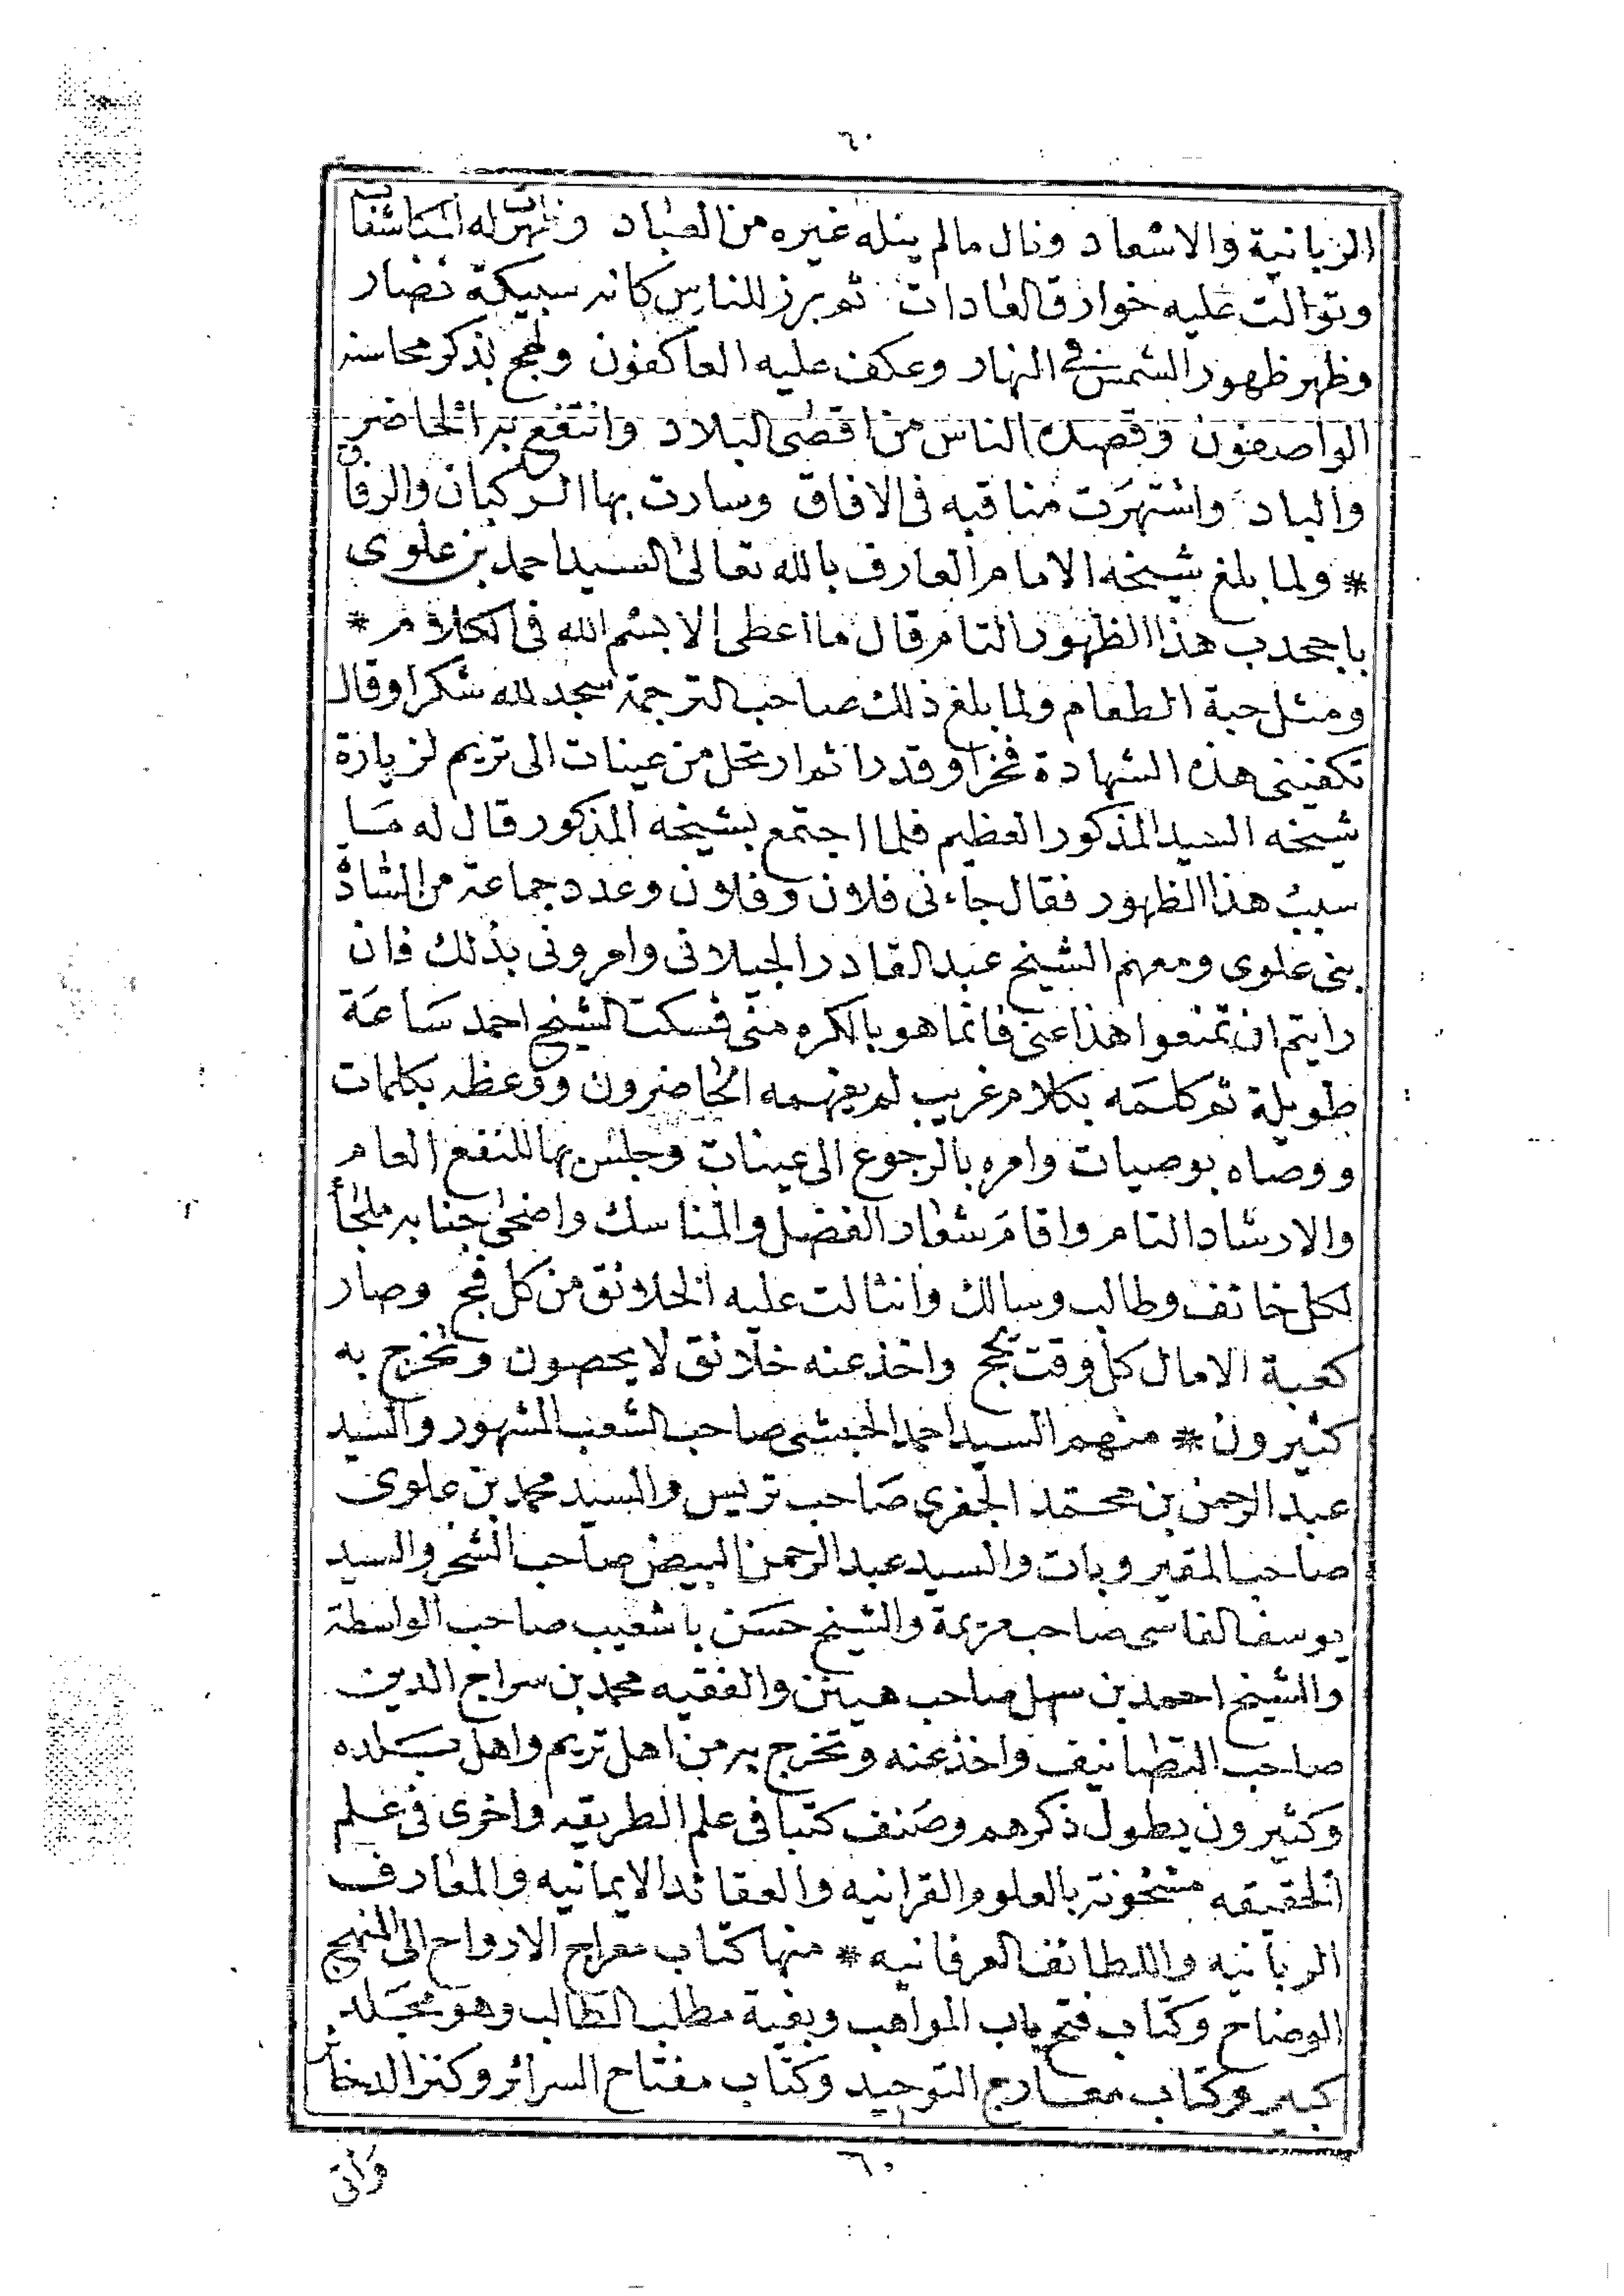 ٦٠
الربانية والاسعاد ونال مالم ينله غيره من العباد وظهرت له المكاشفات
وتوالت عليه خوارق العادات ثم برز للناس كانه سبيكة نضار
وظهر ظهور الشمس في النهار وعكف عليه العاكفون ولهج بذكر محاسنه
الواصفون وقصده الناس من اقصى البلاد وانتفع به الحاضر
والباد واشتهرت مناقبه فى الافاق وسارت بها الركبان والرفاق
* ولما بلغ شيخه الامام العارف بالله تعالى السيد احمد بن علوى
باجحدب هذا الظهور التام قال ما اعطى الا بسم الله فى الكلام *
ومثل حبة الطعام ولما بلغ ذلك صاحب الترجمة سجد لله شكرا وقال
تكفينى هذه الشهادة فخرا وقدرا ثم ارتحل من عينات الى تريم لزيارة
شيخه السيد المذكور العظيم فلما اجتمع بشيخه المذكور قال له ما
سبب هذا الظهور فقال جاءنى فلان وفلان وعدد جماعة من السادة
بنى علوى ومعهم الشيخ عبد القادر الجيلانى وامرونى بذلك فان
رايتم ان تمنعوا هذا عنى فانما هو بالكره منى فسكت الشيخ احمد ساعة
طويلة ثم كلمه بكلام غريب لم يفهمه الحاضرون ووعظه بكلمات
ووصاه بوصيات وامره بالرجوع الى عينات وجلس بها للنفع العام
والارشاد التام واقام شعار الفضل والمناسك واضحى جنابه ملجأ
لكل خائف وطالب وسالك وانثالت عليه الخلائق من كل فج وصار
كعبة الامال كل وقت تحج واخذ عنه خلائق لا يحصون وتخرج به
كثيرون * منهم السيد احمد الحبشى صاحب الشعب المشهور والسيد
عبد الرحمن بن محمد الجفرى صاحب تريس والسيد محمد بن علوى
صاحب المقيروبات والسيد عبد الرحمن البيض صاحب الشحر والسيد
يوسف الفاسى صاحب مريمة والشيخ حسن باشعيب صاحب الواسطة
والشيخ احمد بن سهل صاحب هينن والفقيه محمد بن سراج الدين
صاحب التصانيف واخذ عنه وتخرج به من اهل تريم واهل بلده
وكثيرون يطول ذكرهم وصنف كتبا فى علم الطريقه واخرى فى علم
الحقيقه مشحونة بالعلوم القرانيه والعقائد الايمانيه والمعارف
الربانيه واللطائف العرفانيه * منها كتاب معراج الارواح الى المنهج
الوضاح وكتاب فتح باب المواهب وبغية مطلب الطالب وهو مجلد
كبير وكتاب معارج التوحيد وكتاب مفتاح السرائر وكنز الذخائر
٦٠